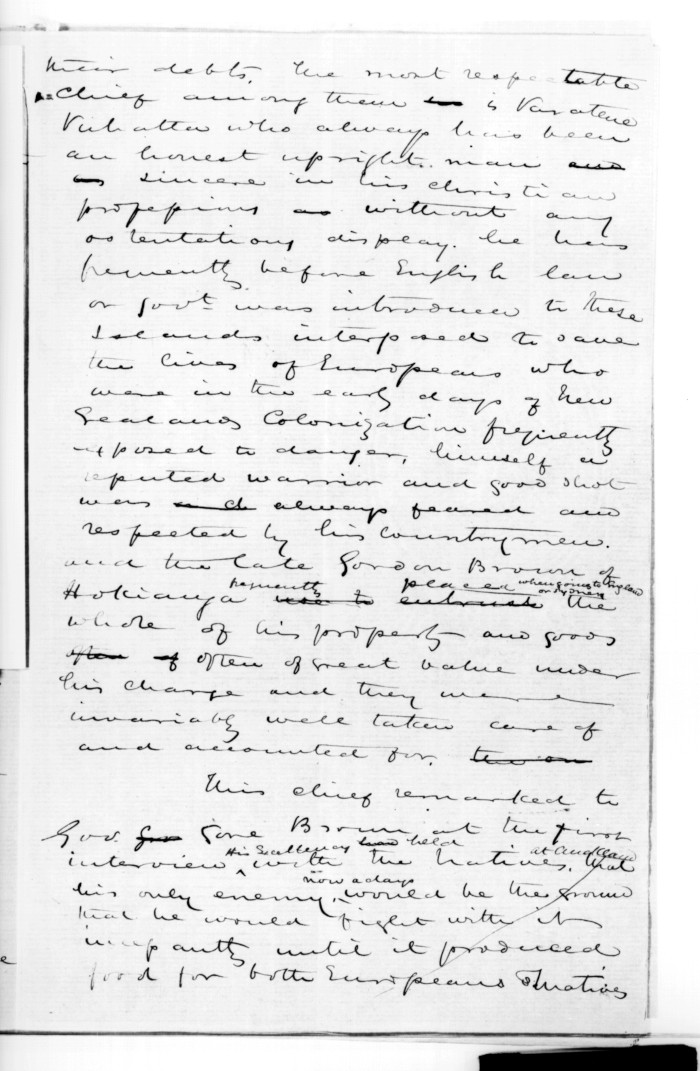 their debts. The most respectable
Chief among them is Varatene
Vuhatta who always has been
an honest upright man and
as sincere in his Christian
professions as without any
ostentatious display. he has
frequently before English law
or Govt. was introduced to these
Islands interposed to save
the lives of Europeans who
were in the early days of New
Zealands Colonization frequently
exposed to danger, himself a
reputed warrior and good shot
was and always feared and
respected by his countrymen.
and the late Gordon Brown of
frequently placed when going to England or Sydney
Hokianga use to entrust the
whole of his property and goods
often of often of great value under
his charge and they were
invariably well taken care of
and accounted for. the on
This chief remarked to
Gov. Gore Brown at the first
His Excellency had held at Auckland
interview with the Natives, that
now a days
his only enemy, would be the ground
that he would fight with it
incessantly until it produced
food for both Europeans & natives